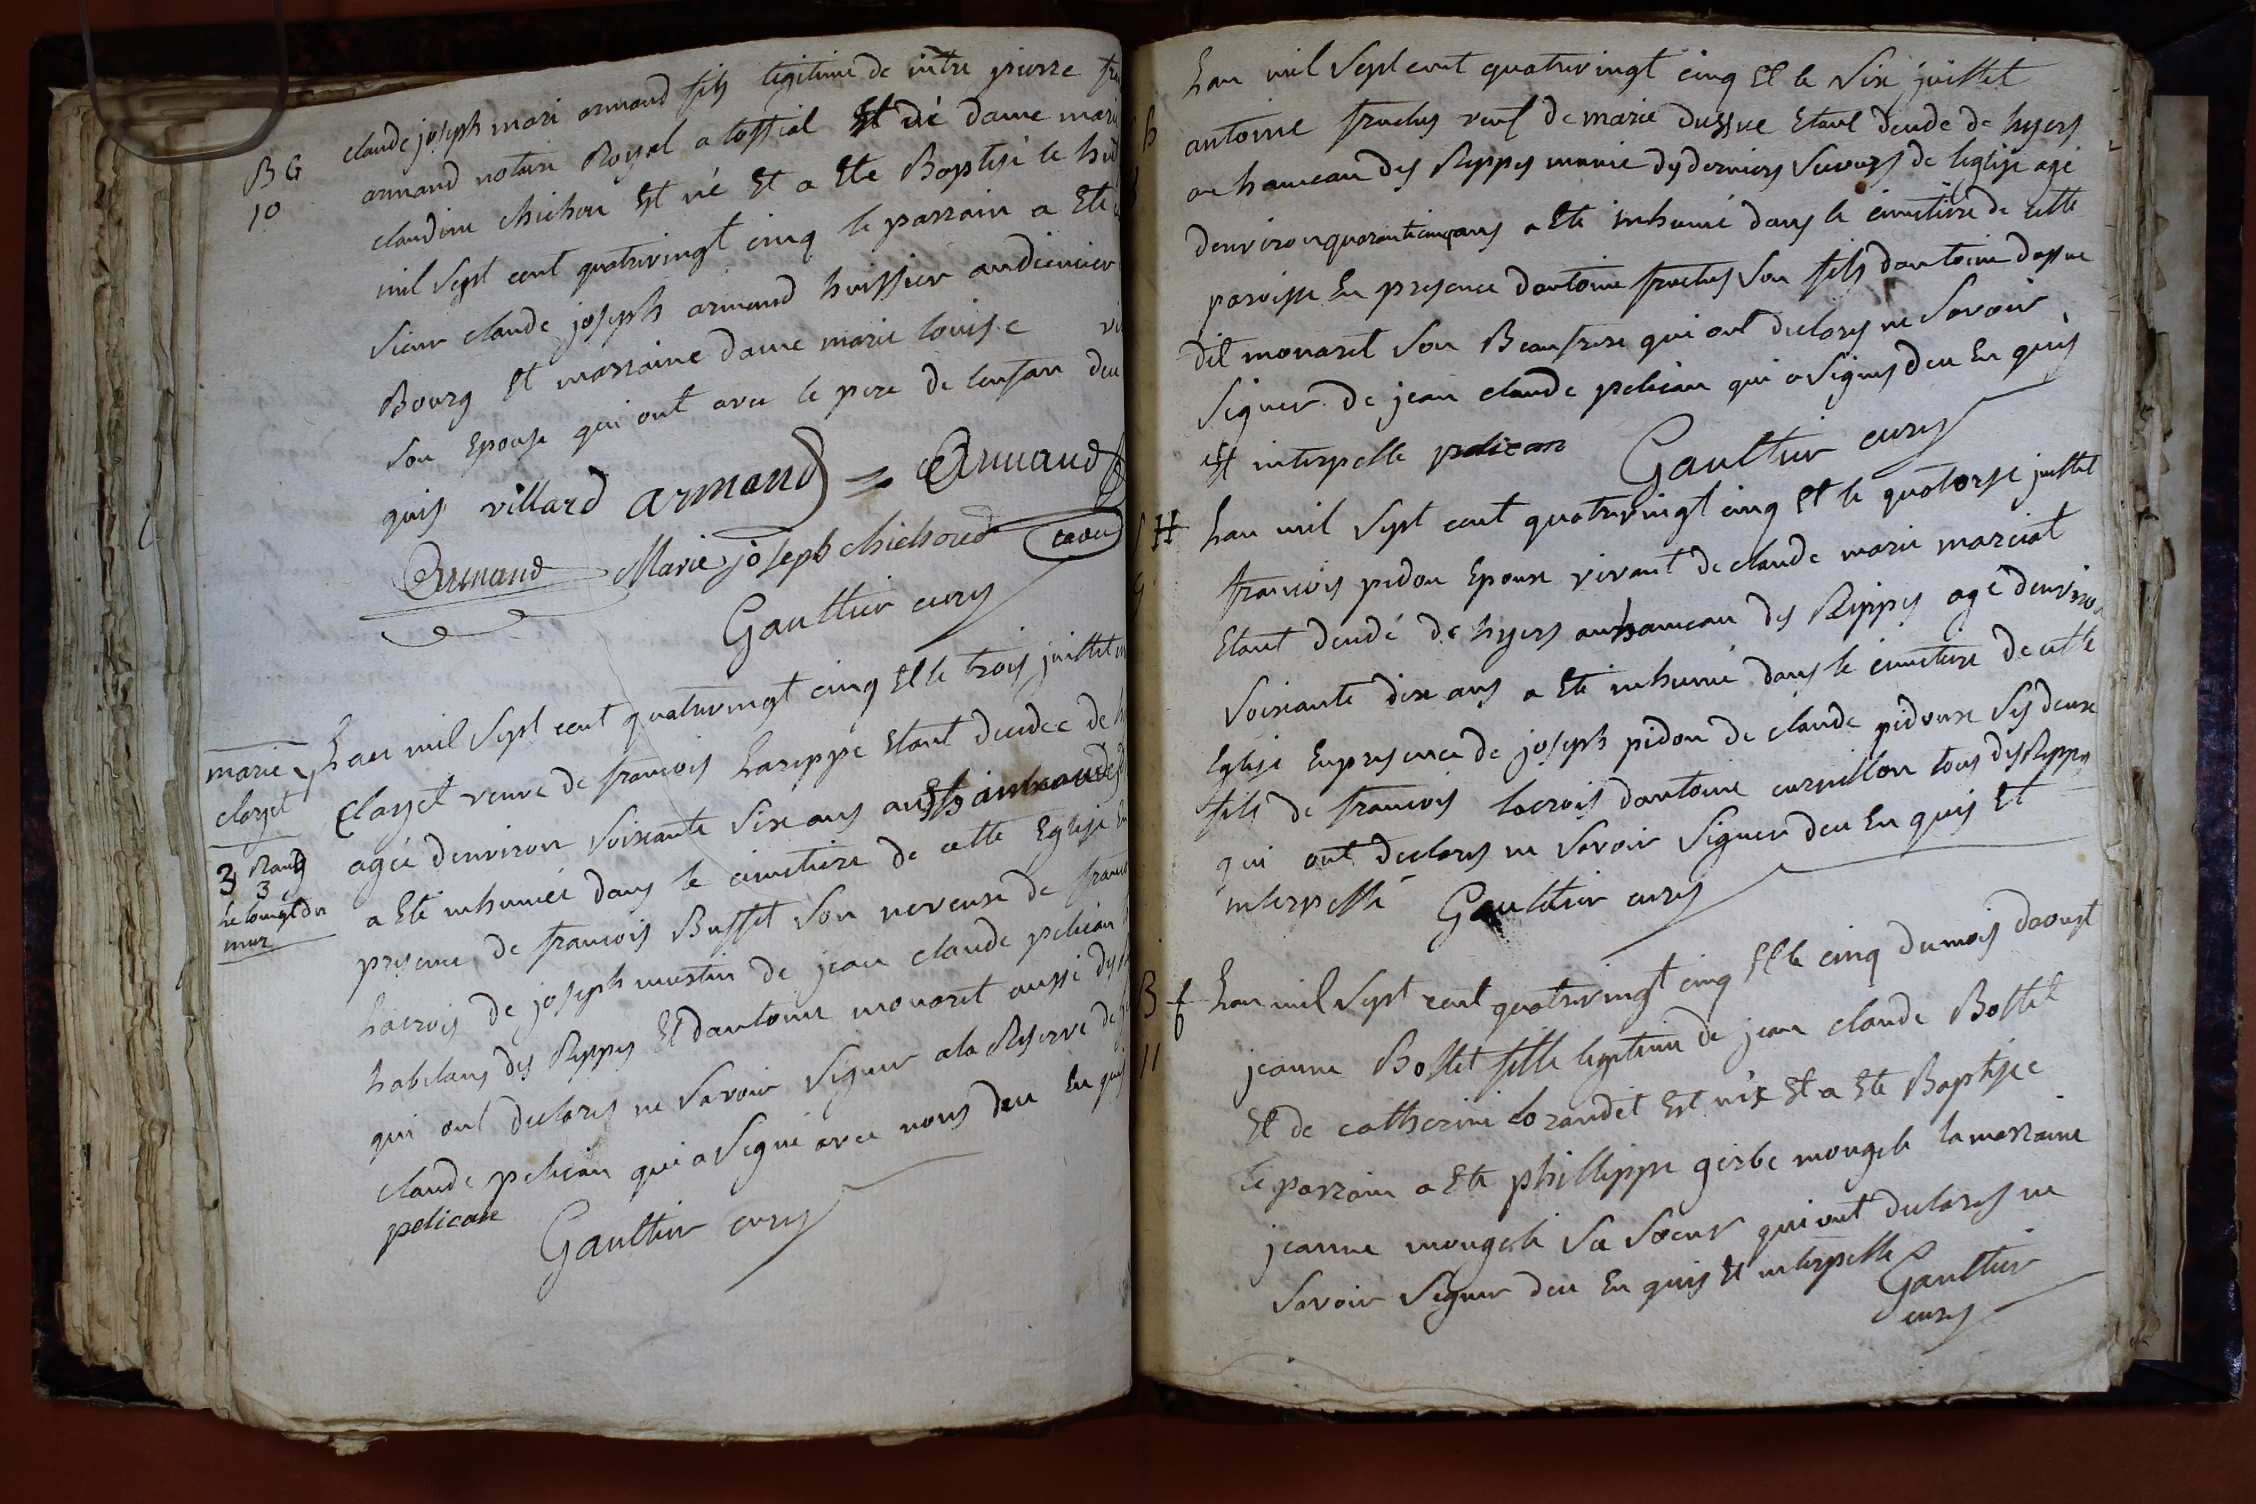 BG
10
claude joseph mari armand fils legitime de mtre pierre
armand notaire Royal a loffial Et de dame marie
claudine chichon Est né Et a Ete Baptisé le
mil sept cent quatrevingt cinq le parrain a Ete
sieur claude joseph armand huissier audiencier
Bourg Et marraine dame marie louise
son Epouse qui ont avec le pere de lenfan deu
quis villard armand Armand
Armand Marie joseph chichoud
Gaulthier curé
marie
clozet
3 Rang
3
le long du
mur
Lan mil sept cent quatrevingt cinq Et le trois juillet
Clozet veuve de francois Lareppe Etant decedee de
agée denviron soixante six ans
a Ete inhumée dans le cimetiere de cette Eglise
presence de francois Buffet son neveux de
Lacroix de joseph mustin de jean claude pelican
habitans des Reppes Et dantoine monaret aussi des
qui ont declares ne savoir signer a la Reserve de
claude pelican qui a signé avec nous deu En quis
pelican Gaulthier curé
Lan mil sept cent quatrevingt cinq Et le six juillet
antoine fruchus veuf de marie dussue Etant decede de hyers
au hameau des Reppes munie des derniers secours de leglise agé
denviron quarante cinq ans a Ete inhumé dans le cimetiere de cette
paroisse En presence dantoine fruchus son fils dantoine dussue
dit monaret son Beaufrere qui ont declares ne savoir
signer de jean claude pelican qui a signes deu En quis
Et interpelle pelican Gaulthier curé
H
Lan mil sept cent quatrevingt cinq Et le quatorze juillet
francois pidou Epoux vivant de claude marie marciat
Etant decedé de hyers au hameau des Reppes agé denviron
soixante dix ans a Ete inhumé dans le cimetiere de cette
Eglise En presence de joseph pidou de claude pidoux ses deux
fils de francois lacroix dantoine curnillon tous des Reppes
qui ont declares ne savoir signer deu En quis Et
interpellé Gaulthier curé
B f
11
Lan mil sept cent quatrevingt cinq Et le cinq du mois daoust
jeanne Bollet fille legitime de jean claude Bollet
Et de catherine Lorandet Est née Et a Ete Baptisée
le parrain a Ete phillippe gerbe mongele la marraine
jeanne mongele sa soeur qui ont declares ne
savoir signer deu En quis Et interpelles
Gaulthier
curé